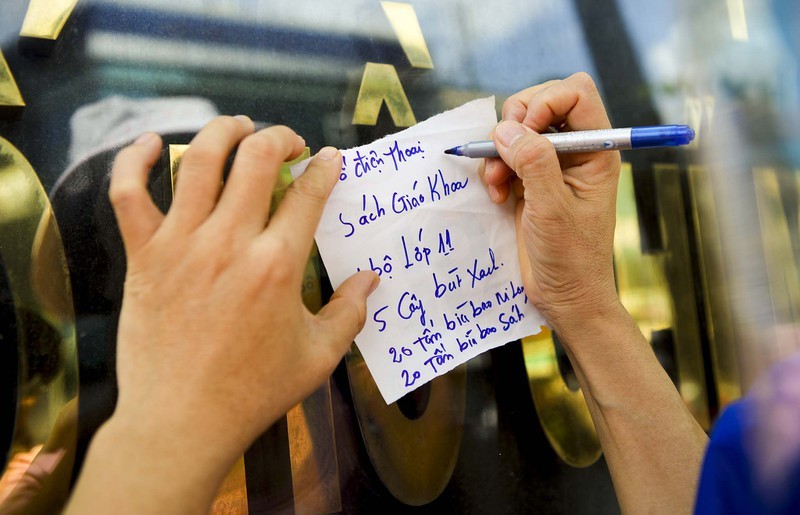 điện Thoại
Sách Giáo Khoa
bộ Lớp 11
5 Cây bút Xanh.
20 Tấm bìa bao Ni Lon
20 Tấm bìa bao Sách